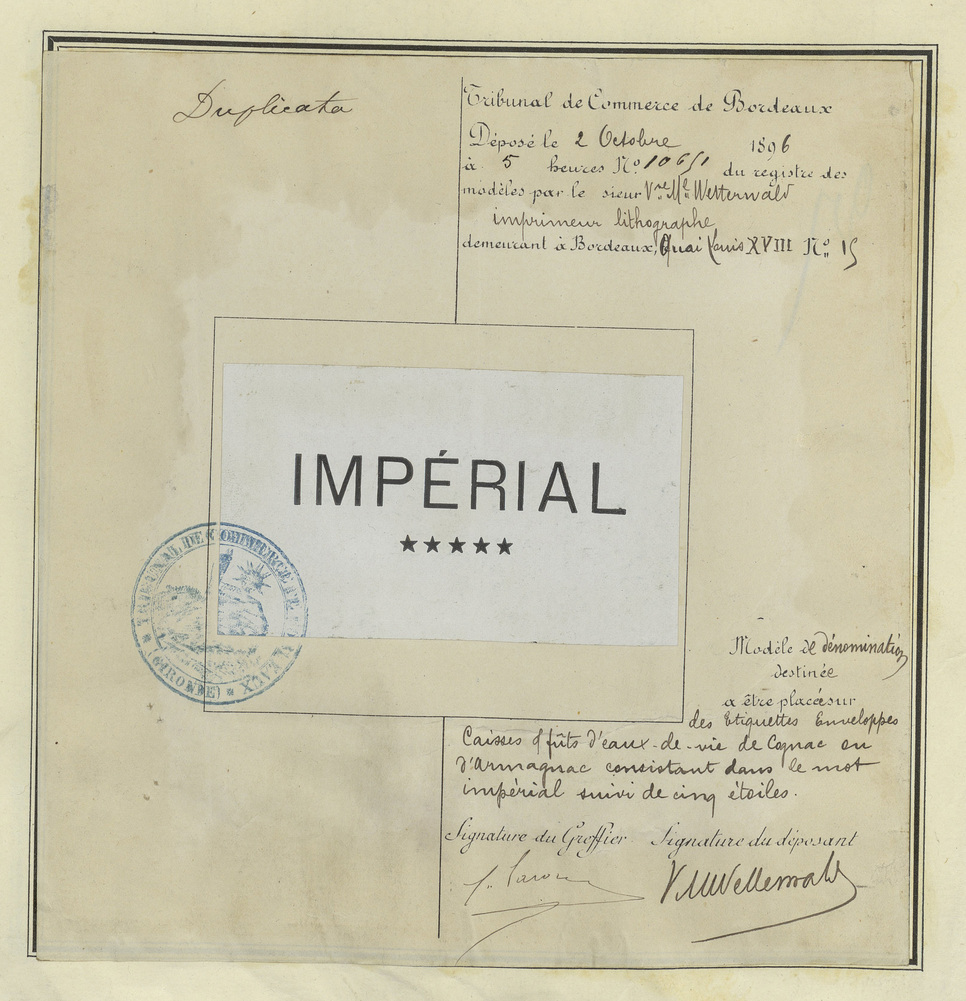 Duplicata
Tribunal de Commerce de Bordeaux
Déposé le 2 Octobre 1896
à 5 heures N° 10651 du registre des
modèles par le sieur Vve Ml Wetterwald
imprimeur lithographe
demeurant à Bordeaux, Quai Louis XVIII N° 15
IMPÉRIAL
★★★★★
TRIBUNAL DE COMMERCE DE BORDEAUX
* (GIRONDE) *
Modèle de dénomination
destinée
a être placée sur
des Etiquettes Enveloppes
Caisses & fûts d'eaux-de-vie de Cognac ou
d'Armagnac consistant dans le mot
impérial suivi de cinq étoiles.
Signature du Greffier Signature du déposant
VMWetterwald